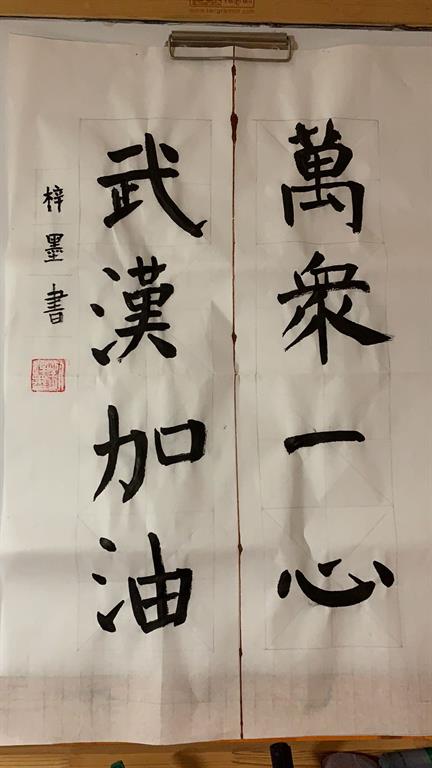 萬衆一心
武漢加油
梓墨書